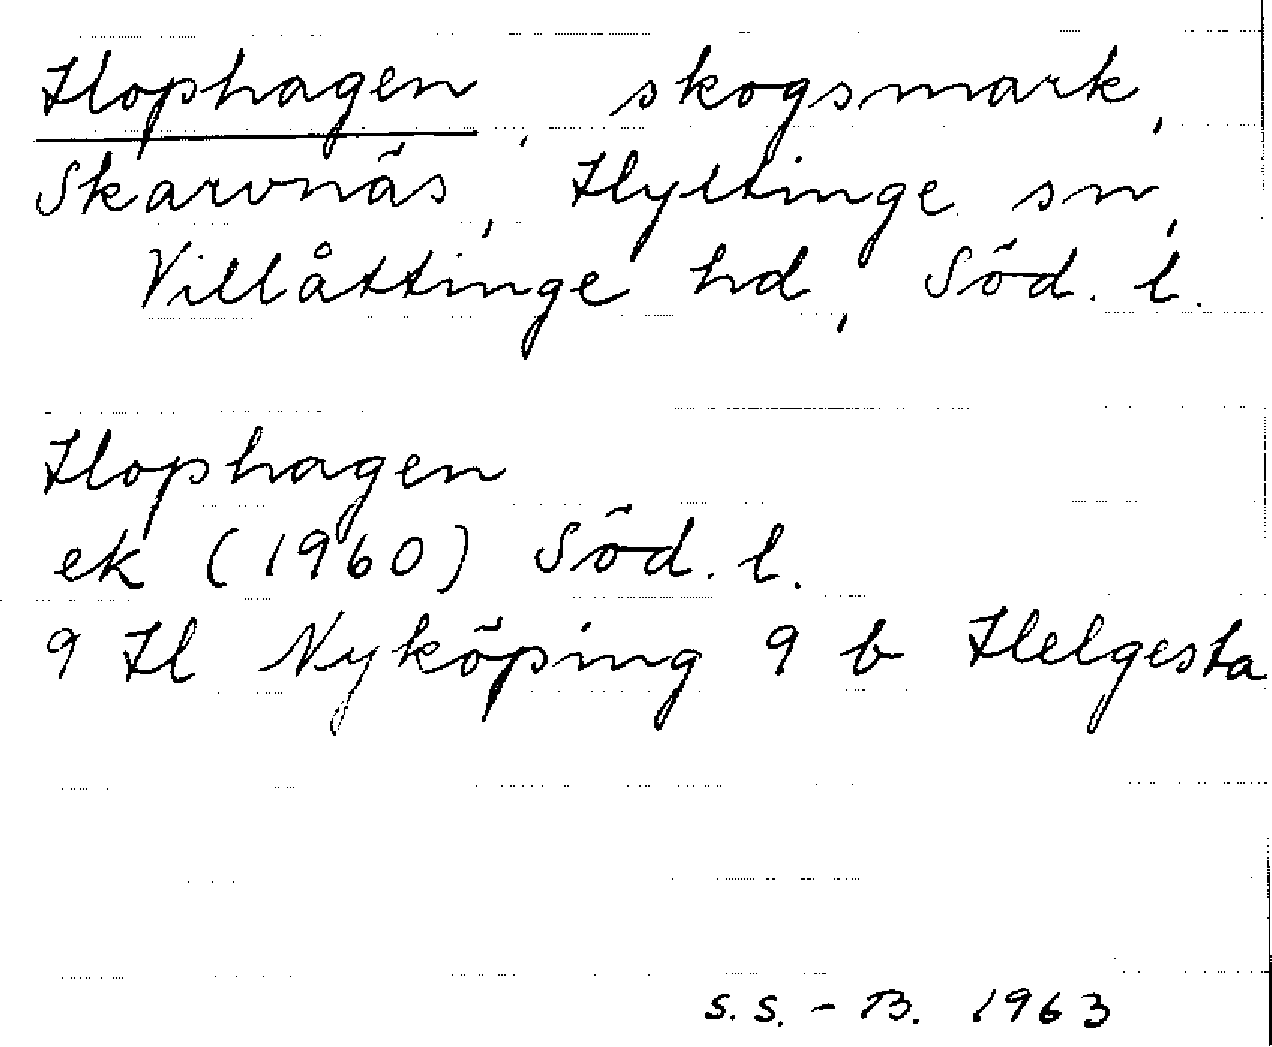 Hophagen, skogsmark,
Skarvnäs, Hyltinge sn,
Villåttinge hd, Söd. l.
Hophagen
ek (1960) Söd. l.
9 H Nyköping 9 b Helgesta
S.S.-B. 1963